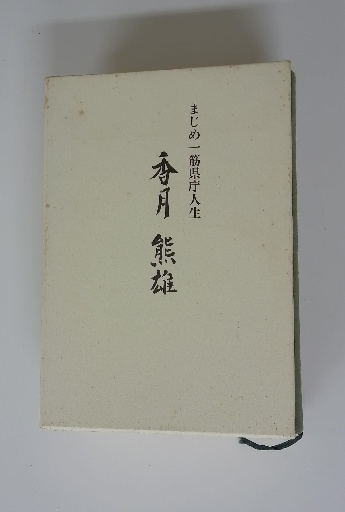 まじめ一筋県庁人生
香月熊雄